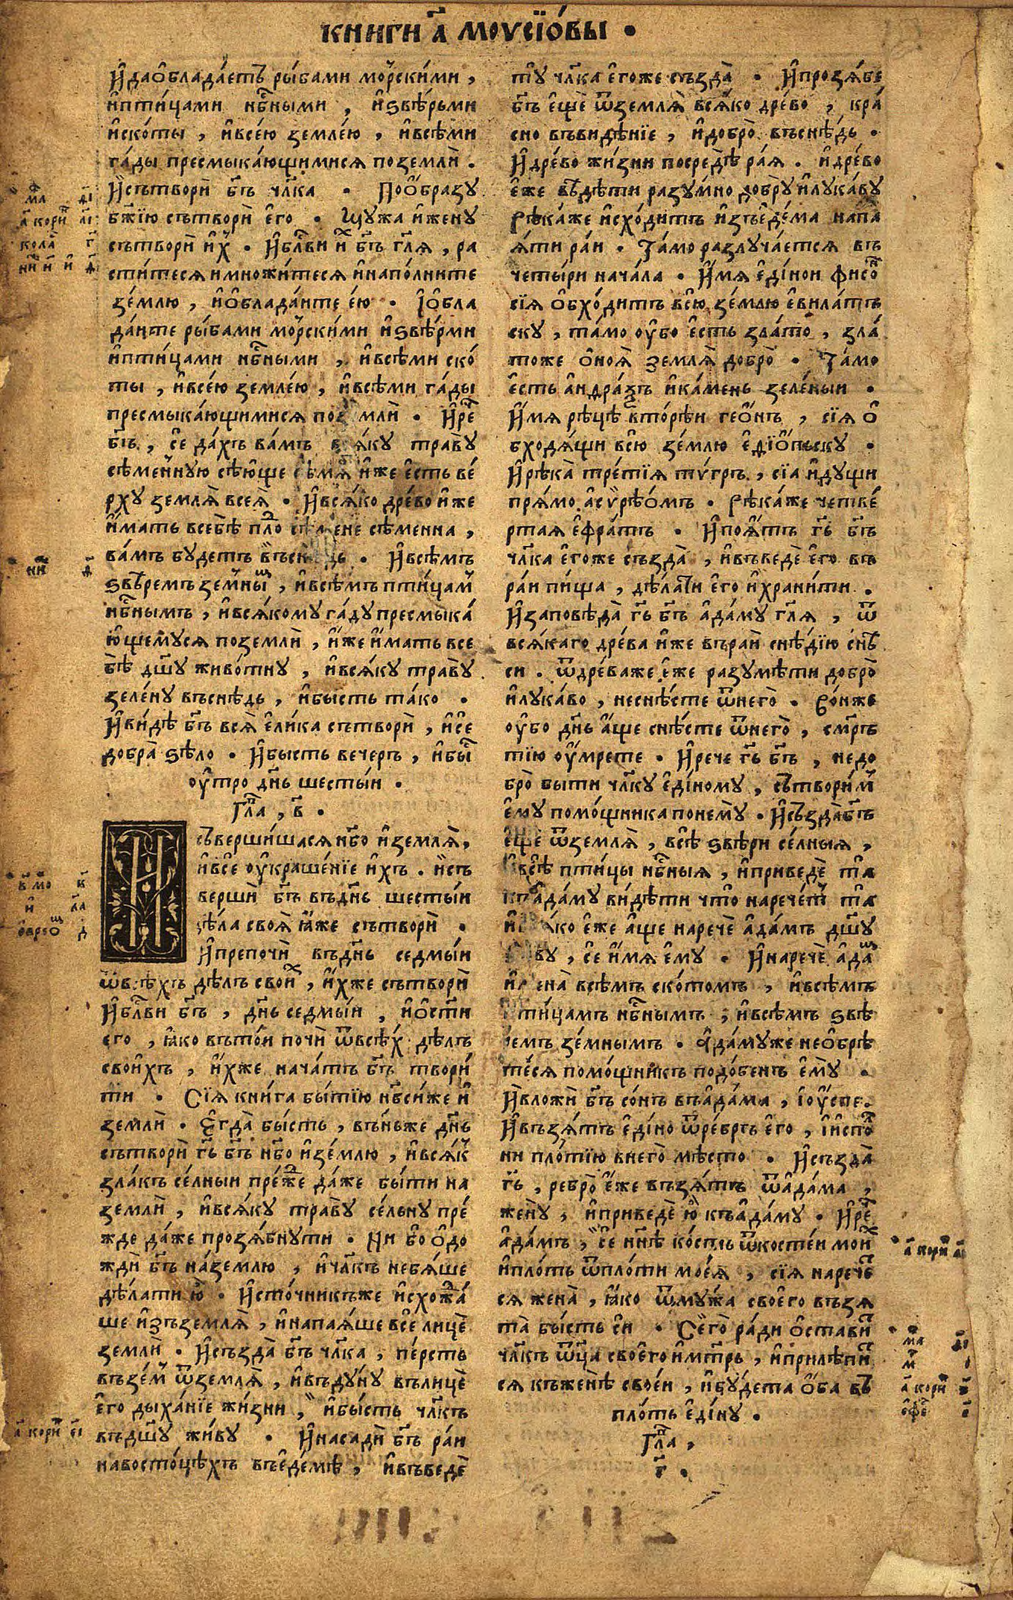 книги а҃ моисїовы .
И҆да ѡ҆бладаетъ рыбами мо́рскими ,
и҆птицами нб҃ными , и҆ѕвѣрьми
и҆ско́ты , и҆всею земле́ю , и҆всѣми
га́ды пресмыка́ющимися поземли .
И҆сътвори бг҃ъ чл҃ка . По ѡ҆бразу
бж҃їю сътвори его . Мужа и҆жену
сътвори и҆х . И҆блг҃ви и҆ бг҃ъ гл҃я , ра
ститеся имножитеся и҆напо́лните
зе́млю , и҆ѡ҆бладаите е́ю . І҆ѡ҆бла
да́ите рыбами мо́рскими и҆ѕвѣрми
и҆птицами нб҃ными , и҆всѣми ско́
ты , и҆всею земле́ю , и҆всѣми га́ды
пресмыка́ющимися поз млѝ . И҆ре
бг҃ъ , се да́хъ ва́мъ в яку траву
сѣменную сѣюще сѣмя и҆же е҆сть ве́
рху земля̀ всея̀ . И҆вся́ко дре́во и҆же
и҆мать всебѣ пло сѣмене сѣменна ,
ва́мъ будетъ въсн дь . И҆всѣмъ
ѕвѣремъ земны , и҆всѣмъ птицам
нб҃нымъ , и҆вся́кому га́ду пресмыка́
ющемуся поземлѝ , и҆же и҆мать все
бѣ дш҃у живо́тну , и҆вся́ку траву
зеле́ну въснѣдь , и҆бысть та́ко .
И҆видѣ бг҃ъ вся̀ е҆лика сътвори , и҆се
добра ѕѣло . И҆бысть вечеръ , и҆бы
оу҆тро дн҃ь шестыи .
Гла , в҃ .
съвершишася нб҃о и҆земля̀ ,
и҆все оу҆краше́нїе и҆хъ . исъ
верши бг҃ъ въдн҃ь шестыи
дѣла своя̀ ꙗ҆же сътвори .
И҆препочи въдн҃ь седмыи
ѿвсѣхъ дѣлъ свои , и҆хже сътвори
И҆блг҃ви бг҃ъ , дн҃ь седмыи , и҆ѡ҆сти
его , ꙗ҆ко въто́и почи ѿвсѣх дѣлъ
свои́хъ , и҆хже нача́тъ бг҃ъ твори
ти . Сїя кни́га бытїю нб҃си́же и҆
землѝ . Е҆гда̀ бы́сть , въньже дн҃ь
сътвори гь҃ бг҃ъ нб҃о и҆зе́млю , и҆вся́к
зла́къ се́лныи пре́же да́же бы́ти на
землѝ , и҆вся́ку траву се́лную пре́
жде да́же прозя́бнути . Ни бо ѡ҆до
жди бг҃ъ на́землю , и҆чл҃къ небя́ше
дѣлати ю҆̀ . И҆сто́чникъже и҆схожа́
ше и҆зъземля̀ , и҆напая́ше все лице
землѝ . И҆създа̀ бг҃ъ чл҃ка , пе́рсть
въземъ ѿземля̀ , и҆въду́ну вълице
его дыха́нїе жи́зни , и҆бысть чл҃къ
въдш҃у жи́ву . И҆насади бг҃ъ ра́и
навосто́цѣхъ въеде́мѣ , и҆въведе
ту чл҃ка е҆гоже създа̀ . И҆прозя́бе
бг҃ъ е҆ще ѿземля̀ вся́ко дре́во , кра́
сно въви́дѣнїе , и҆добро̀ въснѣдь .
И҆дре́во жи́зни посредѣ ра́я . и҆дре́во
е҆же вѣдѣти разумно добру и҆лука́ву
Рѣкаже и҆схо́дитъ и҆зъе҆де́ма напа
я́ти ра́и . Та́мо разлуча́ется въ
четы́ри нача́ла . И҆мя е҆ди́нои фисо
сїя ѡ҆бхо́дитъ всю зе́млю евила́тъ
ску , та́мо оу҆бо е҆сть зла́то , зла́
тоже ѡ҆ноя̀ земля̀ добро̀ . Та́мо
е҆сть а҆ндра́ѯъ и҆ка́мень зеле́ныи .
И҆мя рѣцѣ вто́рѣи гео́нъ , сїя ѡ҆
бходя́щи всю зе́млю е҆дїо́пьску .
И҆рѣка̀ тре́тїя ти́гръ , сїа и҆дущи
пря́мо а҆сѵ́рѣомъ . Рѣкаже четве́
ртая е҆фра́тъ . И҆поя́тъ гь҃ бг҃ъ
чл҃ка е҆гоже създа̀ , и҆въведе его въ
ра́и пи́ща , дѣлати его и҆храни́ти .
И҆заповѣда гь҃ бг҃ъ а҆да́му гл҃я , ѿ
вся́каго дре́ва и҆же въраи снѣдїю снѣ
си . ѿдреваже е҆же разумѣти добро̀
и҆лука́во , неснѣсте ѿнего̀ . Во́нже
оу҆бо дн҃ь а҆ще снѣсте ѿнего̀ , смр҃ть
тїю оу҆мрете . И҆рече гь҃ бг҃ъ , недо
бро̀ быти чл҃ку е҆ди́ному , сътвори́м
е҆му помо́щника понему . И҆създа бг҃ъ
е҆ще ѿземля̀ , всѣ ѕвѣри се́лныя ,
и҆всѣ пти́цы нб҃ныя , и҆приведе тѧ
къ а҆да́му ви́дѣти что наречетъ тѧ
и ко е҆же а҆ще нарече а҆да́мъ дш҃у
ву , се и҆мя е҆му . И҆нарече а҆да
и ена всѣмъ ското́мъ , и҆всѣмъ
тицамъ нб҃нымъ , и҆всѣмъ ѕвѣ
емъ зе́мнымъ . А҆да́муже не ѡ҆брѣ
те́ся помо́щникъ подо́бенъ е҆му .
И҆вложи бг҃ъ со́нъ въа҆да́ма , і҆оу҆спе .
И҆възя́тъ е҆ди́но ѿребръ его , і҆испо
ни пло́тїю внего̀ мѣсто . И҆създа̀
гь҃ , ребро̀ е҆же възя́тъ ѿа҆да́ма ,
жену̀ , и҆приведе ю҆̀ къа҆да́му . И҆ре
а҆да́мъ , се нн҃ѣ ко́сть ѿкосте́и мои
и҆пло́ть ѿпло́ти моея̀ , сїя нарече
ся жена̀ , ꙗ҆ко ѿму́жа своего възя
та̀ бысть си . Сего ра́ди ѡ҆стави
чл҃къ ѿца своего и҆мт҃рь , и҆прилѣпи
ся къженѣ свое́и , и҆бу́дета ѡ҆́ба въ
пло́ть е҆ди́ну .
Гла ,
г҃ .